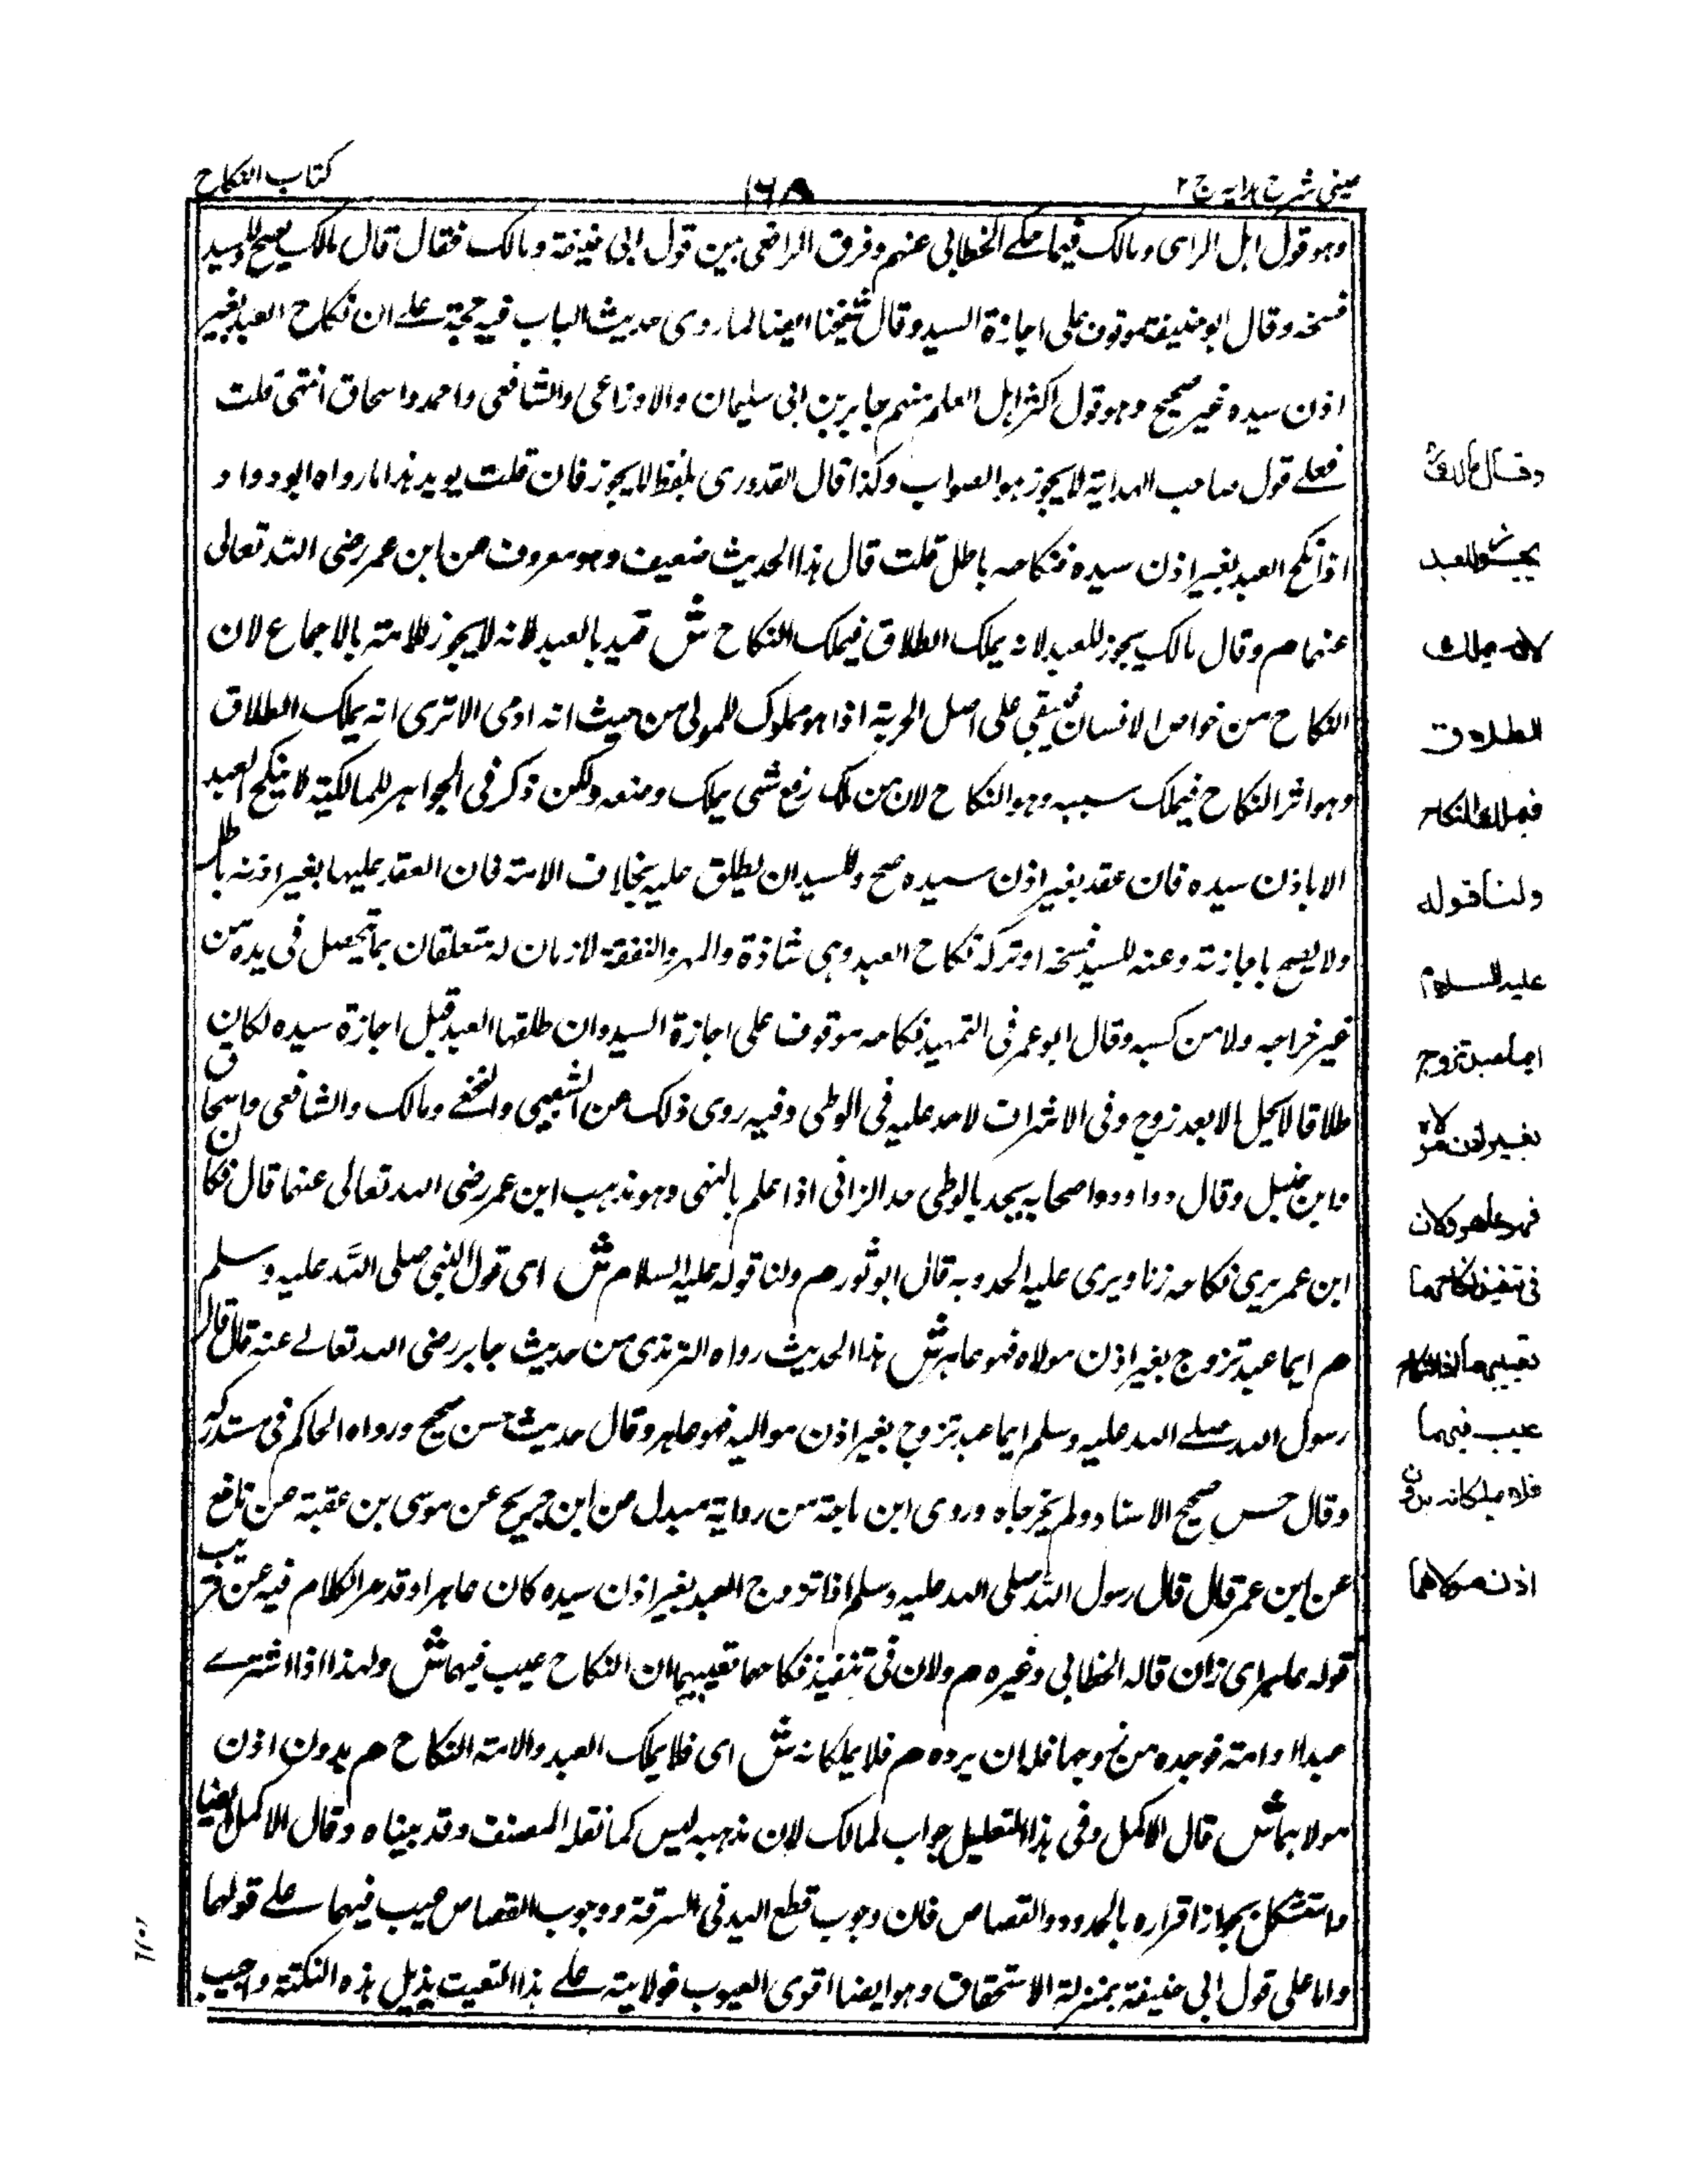 عینی شرح ہدایہ ج ٢
١٦٨
کتاب النکاح
وهو قول اهل الرای ومالک فیما حکے الخطابی عنهم وفرق الرافعی بین قول ابی حنیفة ومالک فقال قال مالک یصح وللسید
فسخه وقال ابو حنیفة موقوف علی اجازة السید وقال شیخنا ایضا لما روی حدیث الباب فیه حجة علے ان نکاح العبد بغیر
اذن سیده غیر صحیح وهو قول اکثر اهل العلم منهم جابر بن ابی سلیمان والاوزاعی والشافعی واحمد واسحاق انتهی قلت
فعلے قول صاحب الهدایة لا یجوز هو الصواب وکذا قال القدوری بلفظ لا یجوز فان قلت یوید هذا ما رواه ابو داود
اذا نکح العبد بغیر اذن سیده فنکاحه باطل قلت قال هذا الحدیث ضعیف وهو معروف من ابن عمر رضی الله تعالی
عنهما م وقال مالک یجوز للعبد لانه یملک الطلاق فیملک النکاح ش قید بالعبد لانه لا یجوز للامة بالاجماع لان
النکاح من خواص الانسان فیبقی علی اصل الحریة اذا هو مملوک للمولی من حیث انه ادمی الا تری انه یملک الطلاق
وهو اثر النکاح فیملک سببه وهو النکاح لان من ملک رفع شی یملک وضعه ولکن ذکر فی الجواهر للمالکیة لا ینکح العبد
الا باذن سیده فان عقد بغیر اذن سیده صح وللسید ان یطلق علیه بخلاف الامة فان العقد علیها بغیر اذنه باطل
ولا یصح باجازته وعنه للسید فسخه او ترکه نکاح العبد وهی شاذة والمهر والنفقة لازمان له متعلقان بما تحصل فی یده من
غیر خراجه ولا من کسبه وقال ابو عمر فی التمهید نکاحه موقوف علی اجازة السید وان طلقها العبد قبل اجازة سیده لکان
طلاقا لا یحل الا بعد زوج وفی الاشراف لا حد علیه فی الوطی وفیه روی ذلک عن الشعبی والنخعے ومالک والشافعی واسحاق
وابن حنبل وقال داود واصحابه یحد بالوطی حد الزانی اذا علم بالنهی وهو مذهب ابن عمر رضی الله تعالی عنهما قال فکان
ابن عمر یری نکاحه زنا ویری علیه الحد وبه قال ابو ثور م ولنا قوله علیه السلام ش ای قول النبی صلی الله علیه وسلم
م ایما عبد تزوج بغیر اذن مولاه فهو عاهر ش هذا الحدیث رواه الترمذی من حدیث جابر رضی الله تعالے عنه قال قال
رسول الله صلے الله علیه وسلم ایما عبد تزوج بغیر اذن موالیه فهو عاهر وقال حدیث حسن صحیح ورواه الحاکم فی مستدرکه
وقال حسن صحیح الاسناد ولم یخرجاه وروی ابن ماجة من روایة مندل من ابن جریج عن موسی بن عقبة عن نافع
عن ابن عمر قال قال رسول الله صلی الله علیه وسلم اذا تزوج العبد بغیر اذن سیده کان عاهرا وقد مر الکلام فیه عن قریب
قوله عاهر ای زان قاله الخطابی وغیره م ولان فی تنفیذ نکاحهما تعییبهما ان النکاح عیب فیهما ش ولهذا اذا اشترے
عبدا او امة فوجده مزوجا فله ان یرده م فلا یملکانه ش ای فلا یملک العبد والامة النکاح م بدون اذن
مولاهما ش قال الاکمل وفی هذا التعلیل جواب لمالک لان مذهبه لیس کما نقله المصنف وقد بیناه وقال الاکمل ایضا
واستشکل بجواز اقراره بالحدود والقصاص فان وجوب قطع الید فی السرقة ووجوب القصاص عیب فیهما علے قولهما
واما علی قول ابی حنیفة بمنزلة الاستحقاق وهو ایضا اقوی العیوب فولایته علے هذا التعییب یذیل هذه النکتة واجیب
وقال مالک
یجوز للعبد
لانه یملک
الطلاق
فیملک النکاح
ولنا قوله
علیه السلام
ایما عبد تزوج
بغیر اذن مولاه
فهو عاهر ولان
فی تنفیذ نکاحهما
تعییبهما اذ النکاح
عیب فیهما
فلا یملکانه بدون
اذن مولاهما